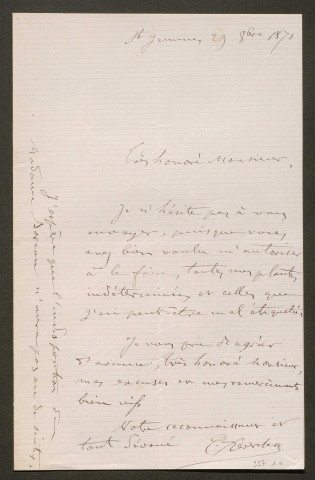 Ste Gemmes 29 8bre 1870
Très honoré Monsieur,
Je n'hésite pas à vous
envoyer, puisque vous
avez bien voulu m'autoriser
à le faire, toutes mes plantes
indéterminées et celles que
j'ai peut-être mal étiquetées
Je vous prie d'agréer
d'avance, très honoré Monsieur,
mes excuses et mes remerciements
bien vifs
Votre reconnaissant et
tout dévoué
J'espère que l'indisposition de
Madame Boreau n'aura pas eu de suites.